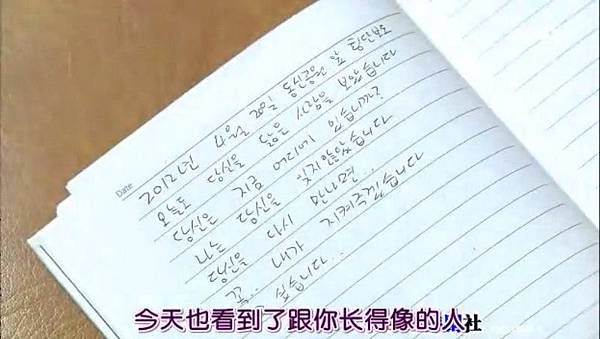 Date
2012년 4월 20일 동신공원 앞 횡단보도
오늘도 당신을 닮은 사람을 보았습니다
당신은 지금 어디에 있습니까?
나는 당신을 잊지않았습니다
당신을 다시 만나면...
꼭... 내가 지켜주겠습니다
보고 싶습니다..
今天也看到了跟你长得像的人
社